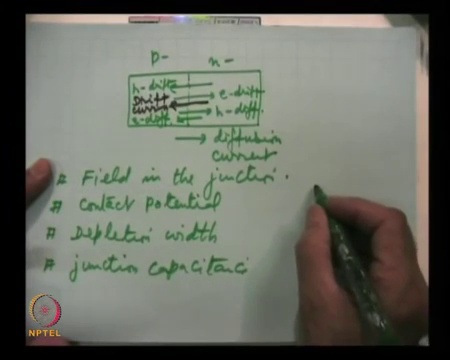 p- n-
h-drift
Drift e-drift
current h-diff.
e-diff.
→ diffusion
current
# Field in the junction.
# Contact potential
# Depletion width
# junction capacitanc
NPTEL